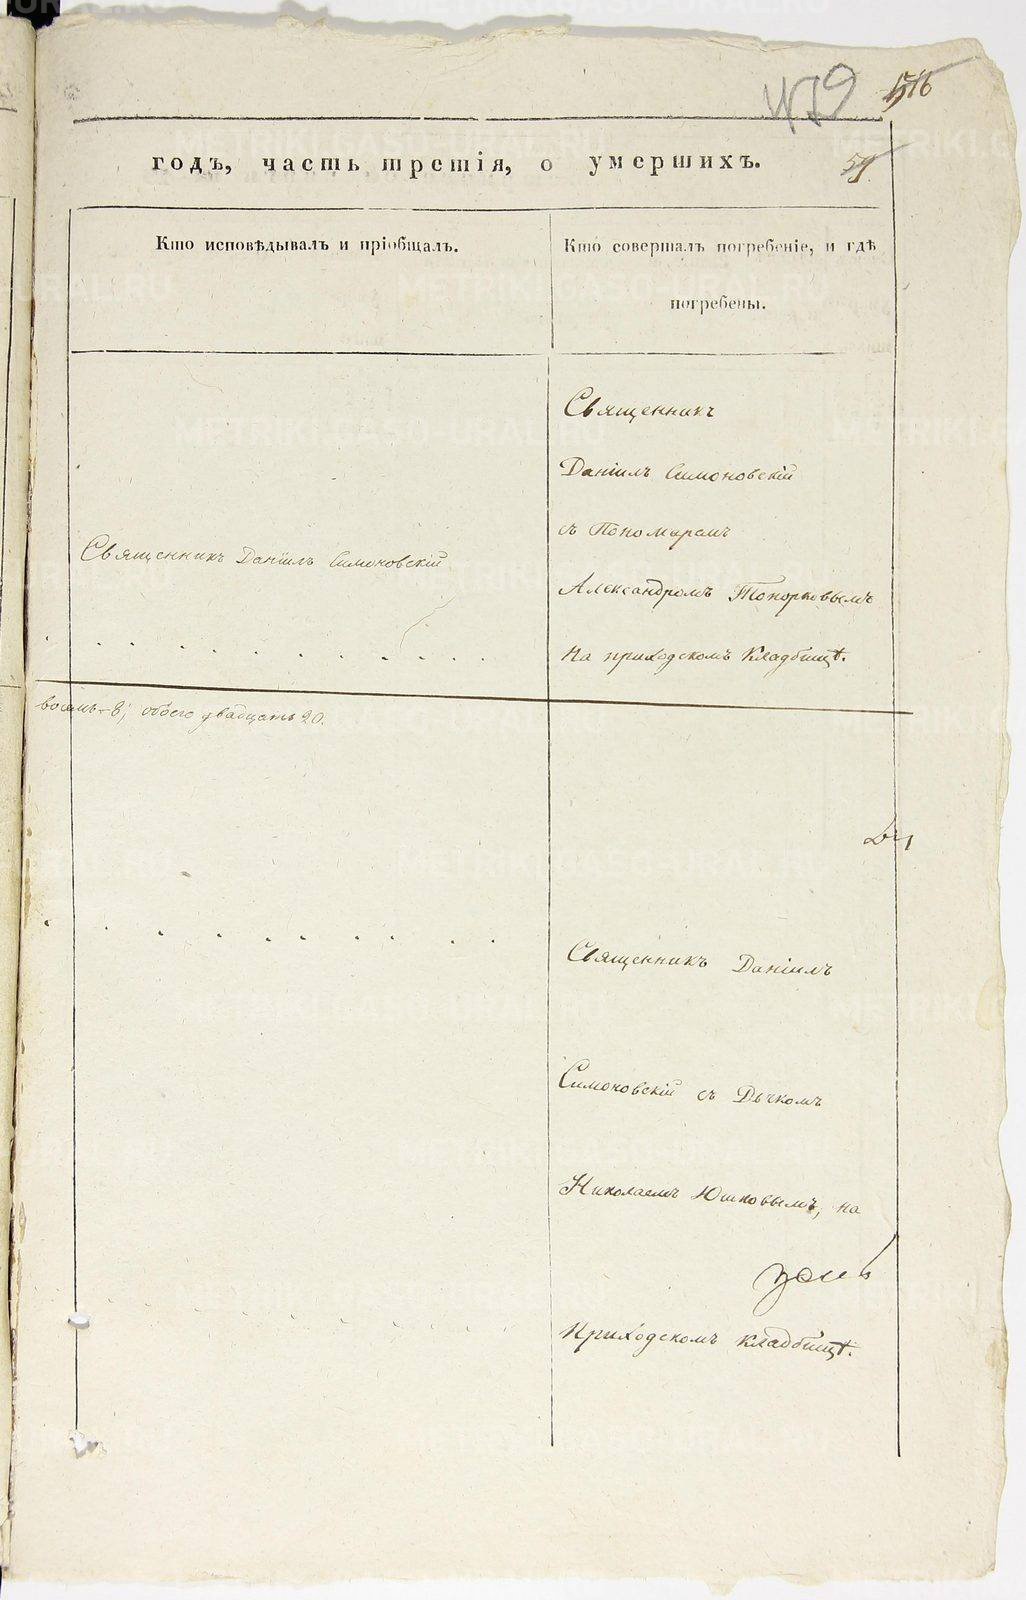 479
516
годъ, часть третія, о умершихъ.
59.
Кто исповѣдывалъ и пріобщалъ.
Кто совершалъ погребеніе, и гдѣ
погребены.
Священникъ
Даніилъ Симоновскій
съ Пономаремъ
Священникъ Даніилъ Симоновскій
Александромъ Топорковымъ
на приходскомъ кладбищѣ.
восмь - 8; обоего двадцать 20.
Священникъ Даніилъ
Симоновскій съ Дьчкомъ
Николаемъ Юшковымъ, на
приходскомъ кладбищѣ.